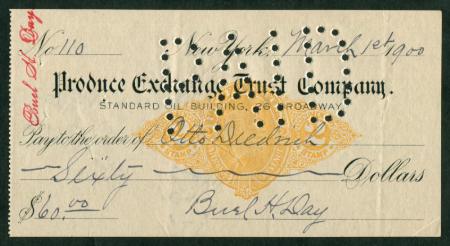 Buel H. Day
No 110 New York, March 1st 1900
Produce Exchange Trust Company.
STANDARD OIL BUILDING, 26 BROADWAY
Pay to the order of Otto Diedrich
Sixty Dollars
$60.00 Buel H. Day